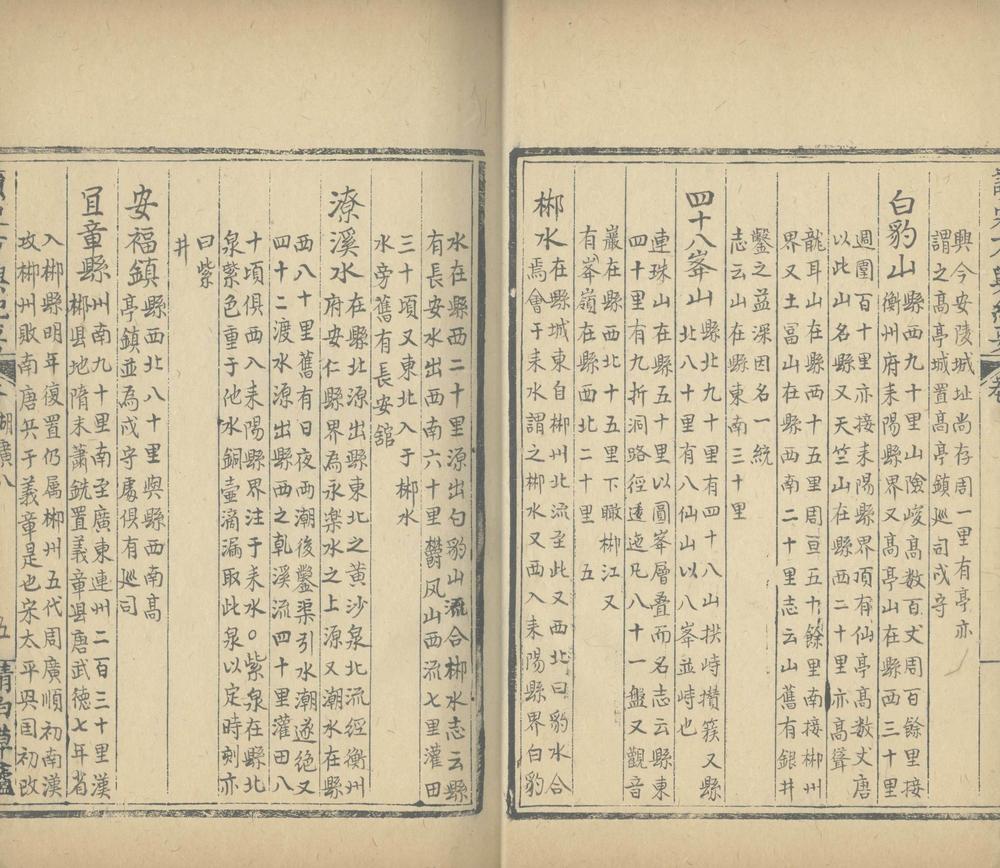 興今安陵城址尚存周一里有亭亦
謂之高亭城置高亭鎮廵司戍守
白豹山縣西九十里山險峻高數百丈周百餘里接
衡州府耒陽縣界又高亭山在縣西三十里
週圍百十里亦接耒陽縣界頂有仙亭高数丈唐
以此山名縣又天竺山在縣西二十里亦高聳
龍耳山在縣西十五里周亘五十餘里南接郴州
界又土富山在縣西南二十里志云山舊有銀井
鑿之益深因名一統
志云山在縣東南三十里
四十八峯山縣北九十里有四十八山拱峙攢簇又縣
北八十里有八仙山以八峯並峙也
連珠山在縣五十里以圓峯層叠而名志云縣東
四十里有九折洞路徑逶迤凡八十一盤又觀音
巖在縣西北十五里下瞰郴江又
有峯嶺在縣西北二十里 五
郴水在縣城東自郴州北流至此又西北曰豹水合
焉會于耒水謂之郴水又西入耒陽縣界白豹
水在縣西二十里源出白豹山流合郴水志云縣
有長安水出西南六十里欝凤山西流七里灌田
三十頃又東北入于郴水
水旁舊有長安舘
潦溪水在縣北源出縣東北之黃沙泉北流經衡州
府安仁縣界為永樂水之上源又潮水在縣
西八十里舊有日夜两潮後鑿渠引水潮遂绝又
四十二渡水源出縣西之乹溪流四十里灌田八
十頃俱西入耒陽縣界注于耒水○紫泉在縣北
泉縈色重于他水銅壷滴漏取此泉以定時刻亦
曰紫
井
安福鎮縣西北八十里與縣西南高
亭鎮並為戍守處俱有廵司
冝章縣州南九十里南至廣東連州二百三十里漢
郴縣地隋末蕭銑置義章縣唐武徳七年省
入郴縣明年復置仍属郴州五代周廣順初南漢
攻郴州敗南唐兵于義章是也宋太平興国初改
湖廣八
五